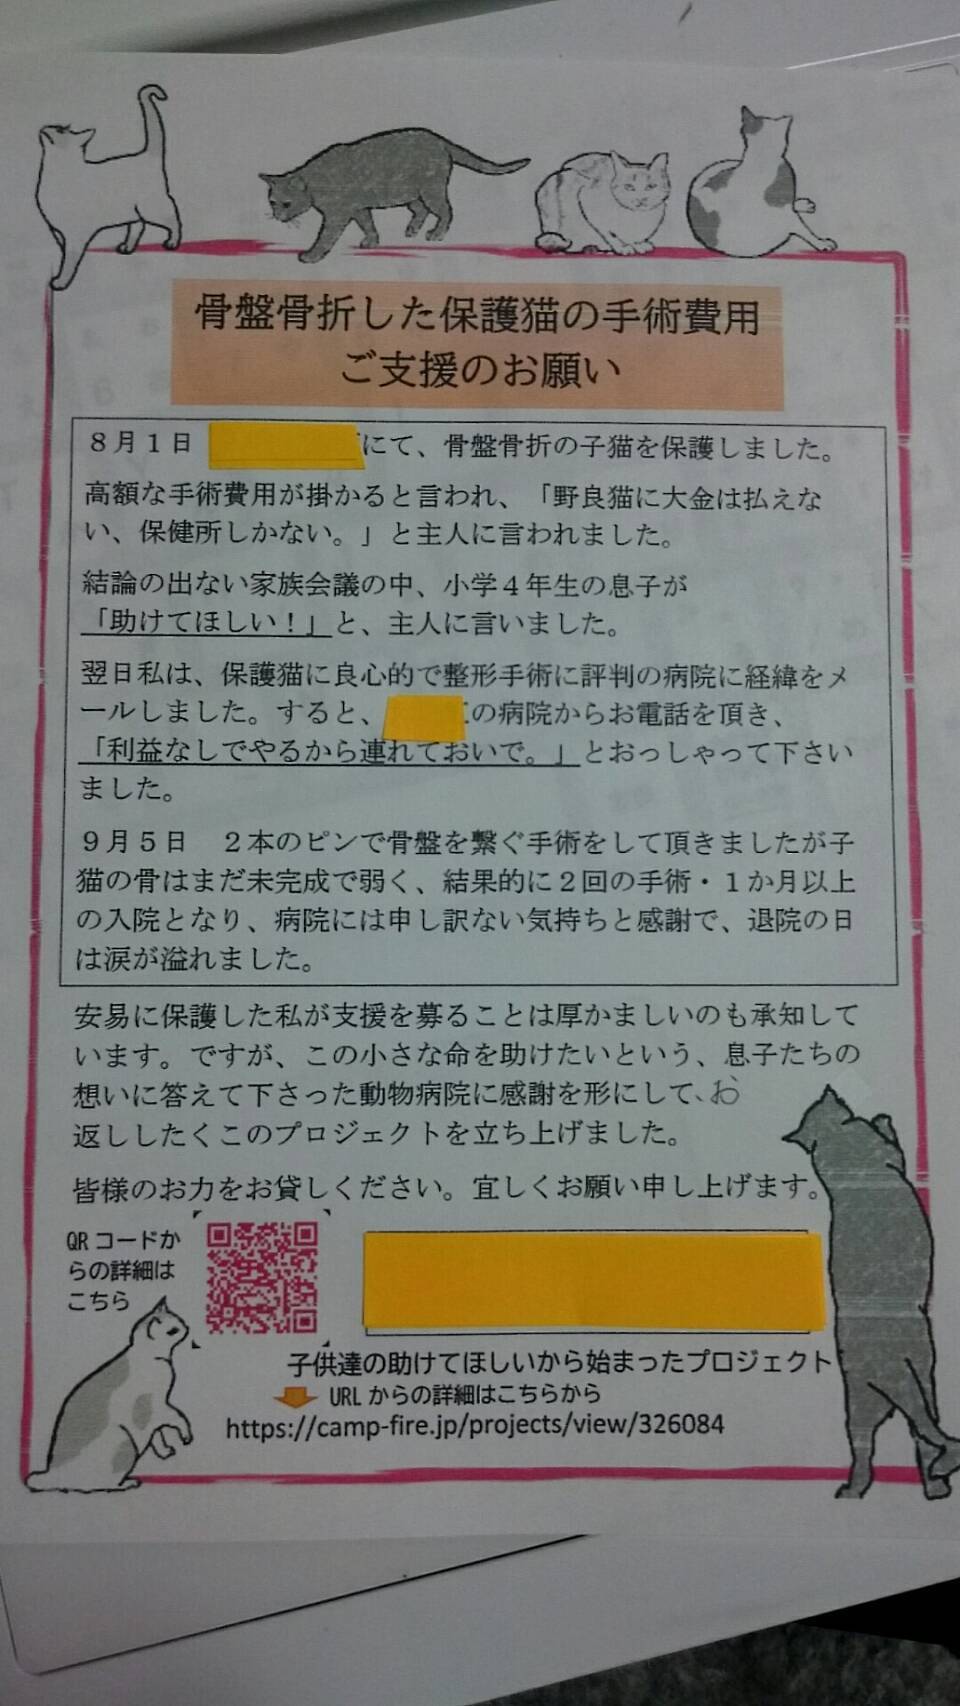 骨盤骨折した保護猫の手術費用
ご支援のお願い
８月１日 にて、骨盤骨折の子猫を保護しました。
高額な手術費用が掛かると言われ、「野良猫に大金は払えな
い、保健所しかない。」と主人に言われました。
結論の出ない家族会議の中、小学４年生の息子が
「助けてほしい！」と、主人に言いました。
翌日私は、保護猫に良心的で整形手術に評判の病院に経緯をメ
ールしました。すると、 の病院からお電話を頂き、
「利益なしでやるから連れておいで。」とおっしゃって下さい
ました。
９月５日　２本のピンで骨盤を繋ぐ手術をして頂きましたが子
猫の骨はまだ未完成で弱く、結果的に２回の手術・１か月以上
の入院となり、病院には申し訳ない気持ちと感謝で、退院の日
は涙が溢れました。
安易に保護した私が支援を募ることは厚かましいのも承知して
います。ですが、この小さな命を助けたいという、息子たちの
想いに答えて下さった動物病院に感謝を形にして、お
返ししたくこのプロジェクトを立ち上げました。
皆様のお力をお貸しください。宜しくお願い申し上げます。
QRコードか
らの詳細は
こちら
子供達の助けてほしいから始まったプロジェクト
URLからの詳細はこちらから
https://camp-fire.jp/projects/view/326084